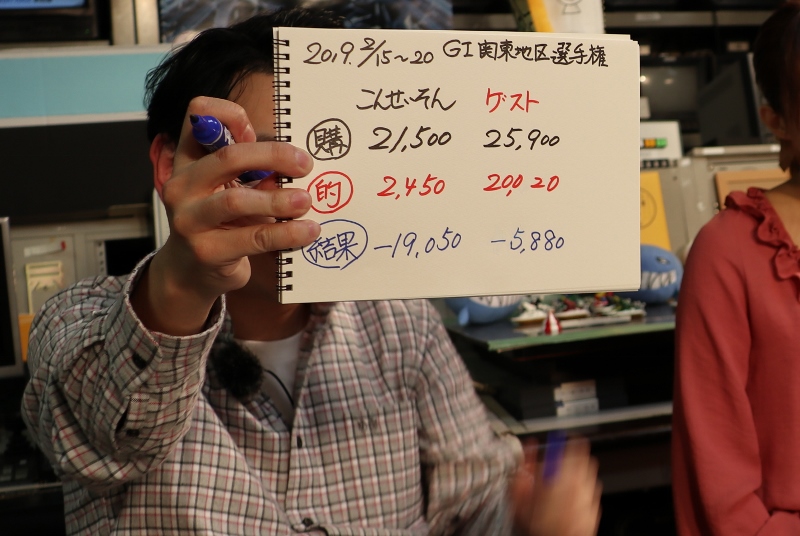 2019. 2/15~20 GI 関東地区選手権
こんせーそん ゲスト
購 21,500 25,900
的 2,450 20,020
結果 -19,050 -5,880